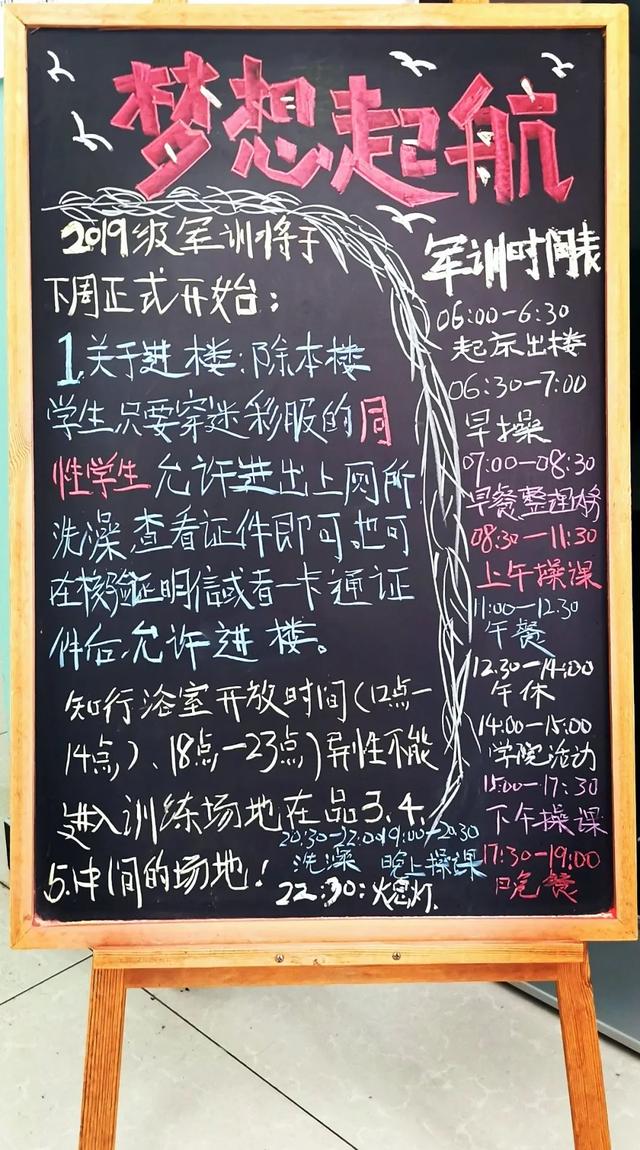 梦想起航
2019级军训将于
下周正式开始：
1.关于进楼：除本楼
学生只要穿迷彩服的同
性学生允许进出上厕所
洗澡，查看证件即可，也可
在核验证明信或者一卡通证
件后，允许进楼。
知行浴室开放时间（12点—
14点）、18点—23点）异性不能
进入训练场地在品3.4.
5.中间的场地！
军训时间表
06:00—6:30
起床出楼
06:30—7:00
早操
07:00—08:30
早餐整理内务
08:30—11:30
上午操课
11:00—12:30
午餐
12:30—14:00
午休
14:00—15:00
学院活动
15:00—17:30
下午操课
17:30—19:00
晚餐
19:00—20:30
晚上操课
20:30—22:00
洗澡
22:30：熄灯.